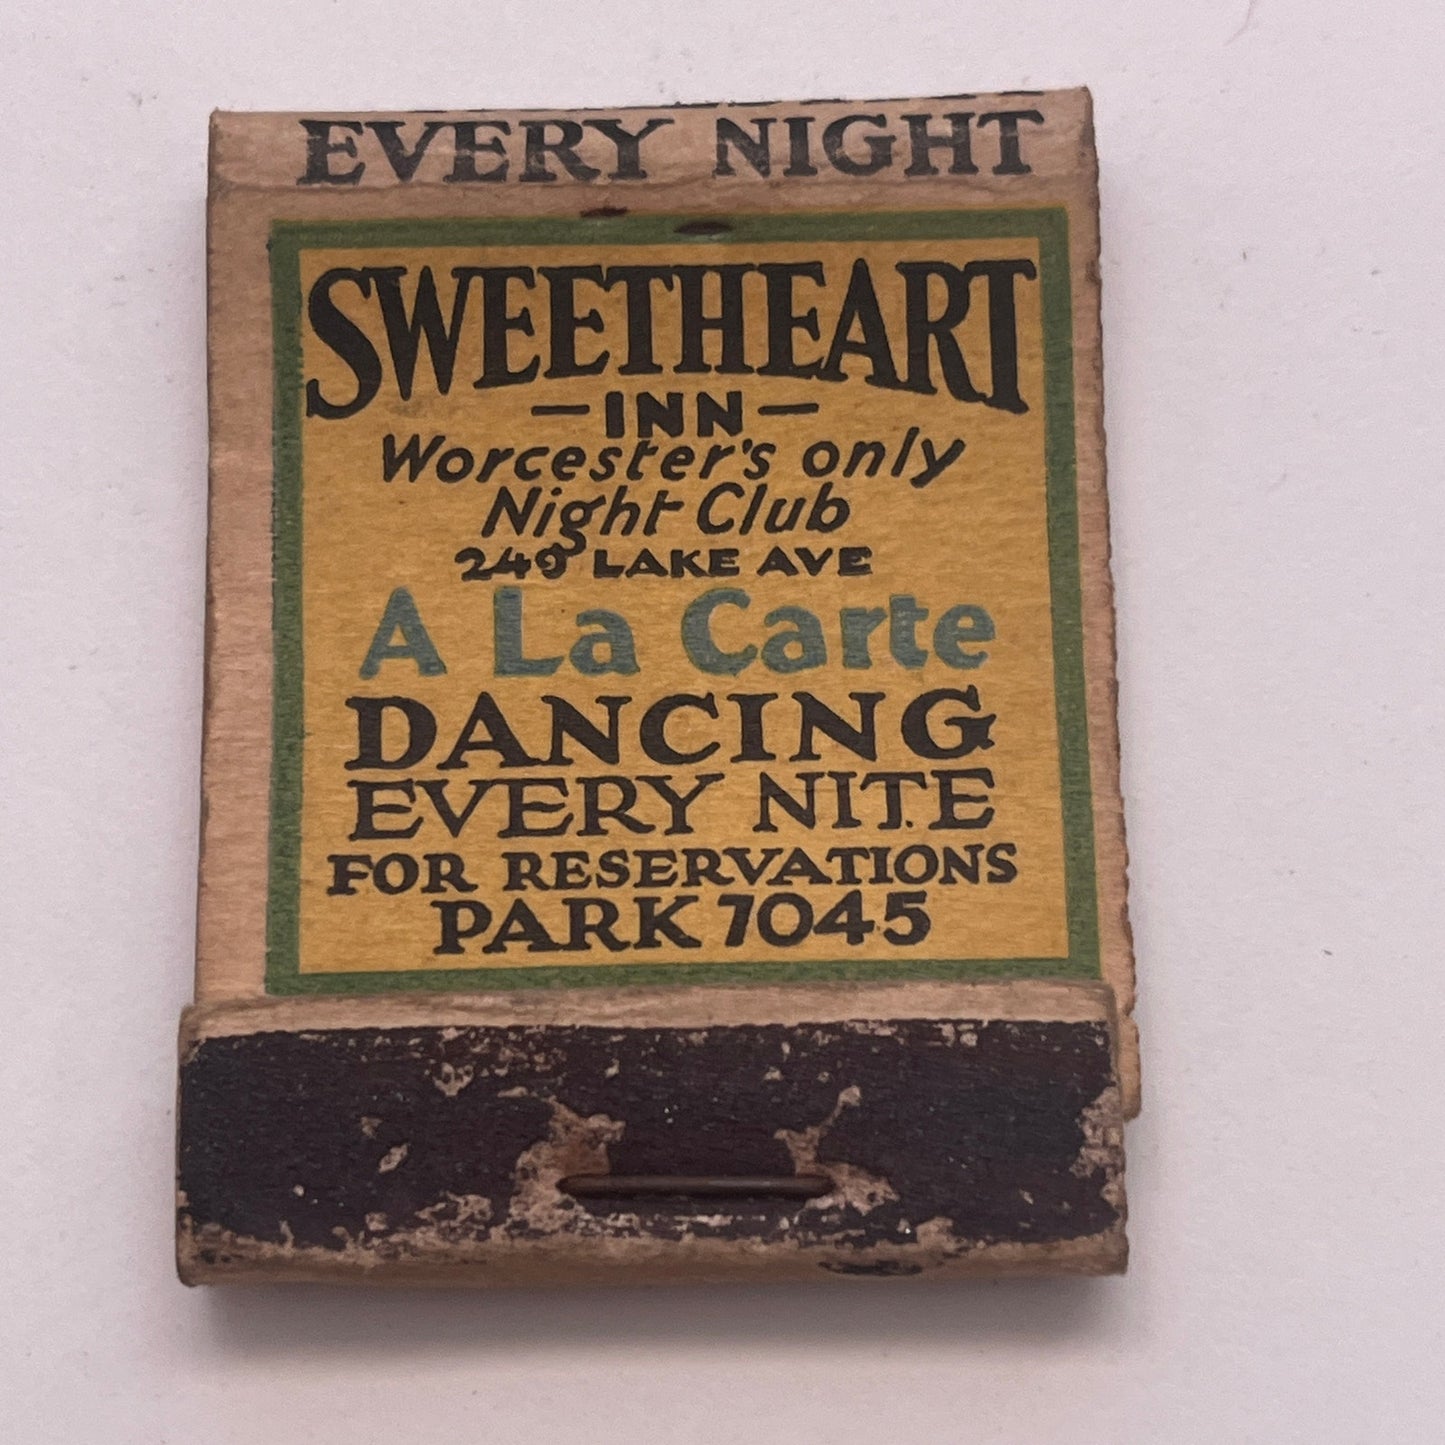 EVERY NIGHT
SWEETHEART
-INN-
Worcester's only
Night Club
249 LAKE AVE
A La Carte
DANCING
EVERY NITE
FOR RESERVATIONS
PARK 7045